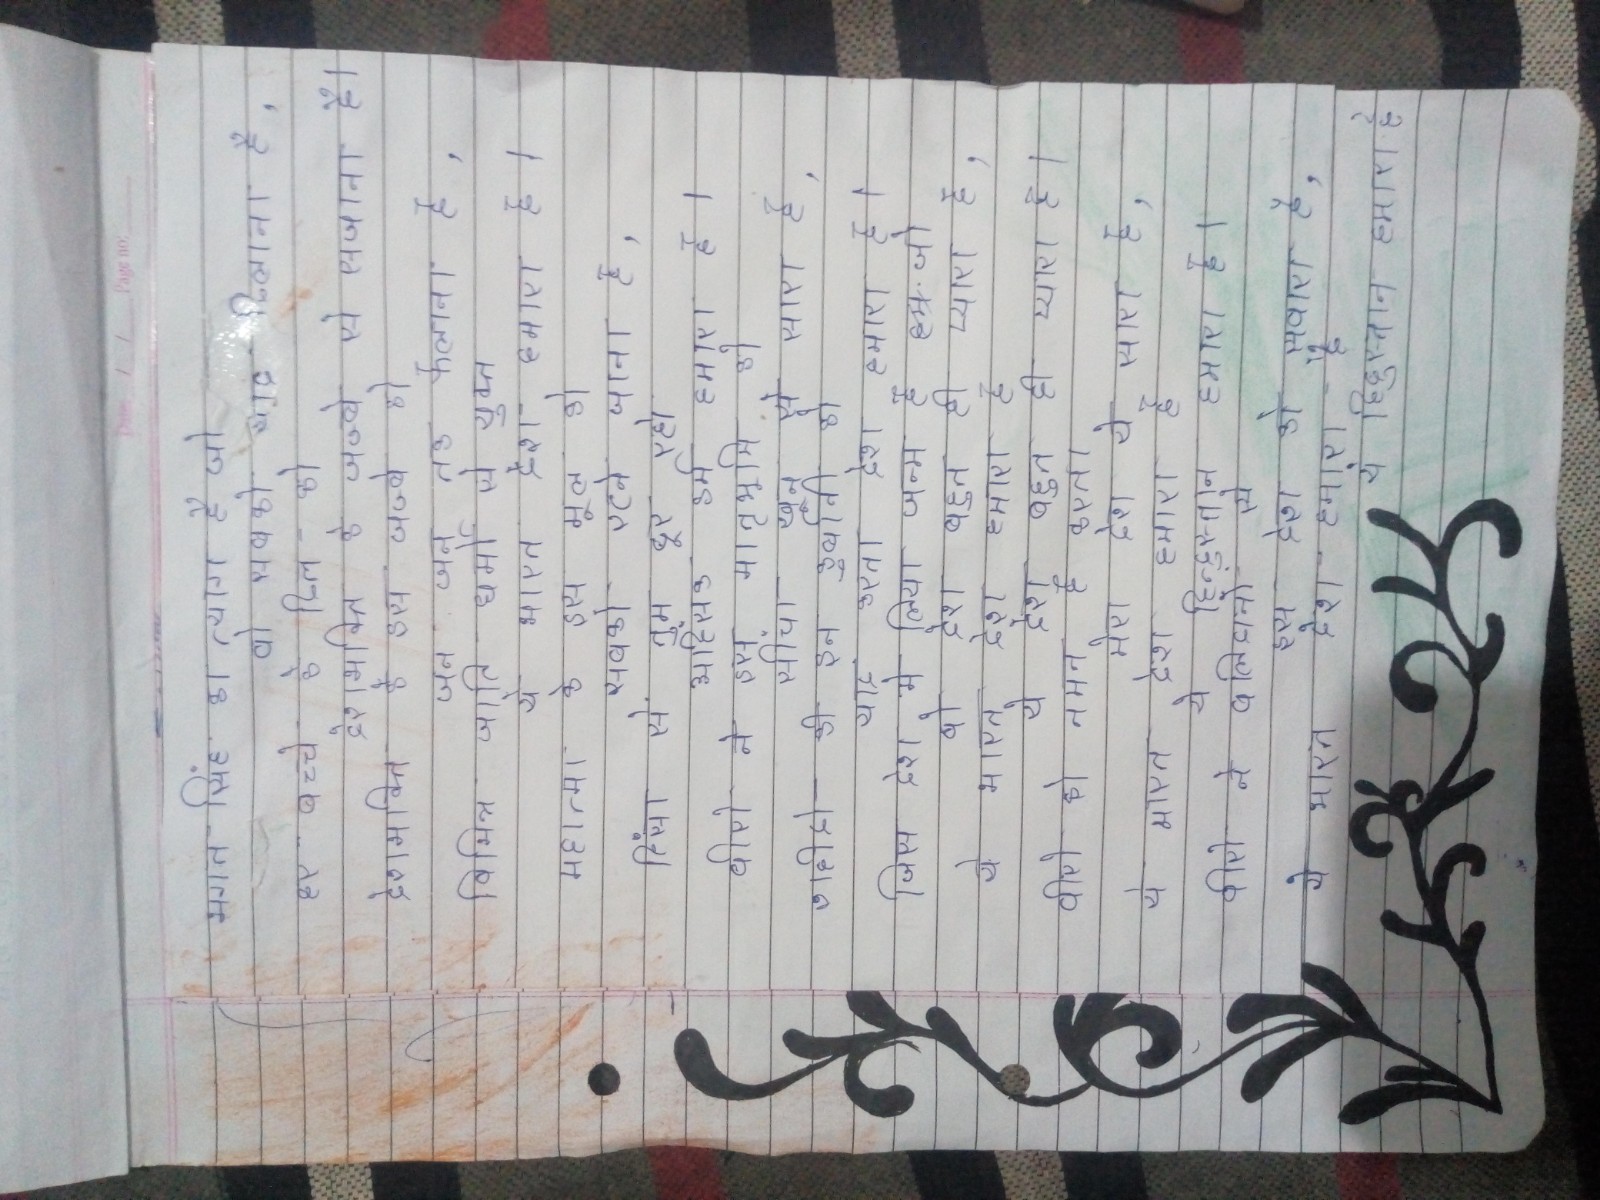 Date: / / Page no:
भगत सिंह का त्याग है जो
वो सबको याद दिलाना है,
हर बच्चे के दिल की
देशभक्ति के जज्बे से सजाना है।
देशभक्ति के इस जज्बे को
जन जन तक फैलाना है,
विभिन्न जाति धर्मो से युक्त
ये भारत देश हमारा है।
महात्मा के इस मूल्य को
सबको रटते जाना है,
हिंसा से तुम दूर रहो
अहिंसक मुल्क हमारा है।
वीरो ने इस मातृभूमि को
सींचा खून से सारा है,
शहीदो की इन कुर्बानियों को
याद करता देश हमारा है।
जिस देश में लिया जन्म है हम.ने
वो देश बड़ा ही प्यारा है,
ये भारत देश हमारा है
ये देश बड़ा ही प्यारा है।
वीरो को नमन है करता
सेना से देश ये सारा है,
ये भारत देश हमारा है
ये हिन्दुस्तान हमारा है।
वीरो के बलिदानों से
हुआ देश को उजाला है,
ये भारत देश हमारा है
ये हिंदुस्तान हमारा है।